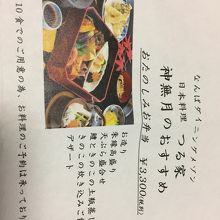 なんばダイニングメゾン
日本料理 つる家
神無月のおすすめ
おたのしみお弁当 ￥3,300(税別)
お造り
朱縁高盛り
天ぷら盛合せ
鱧ときのこの土瓶蒸し
きのこの炊き込みご
デザート
10食でのご用意の為、お料理のご予約は承ってお